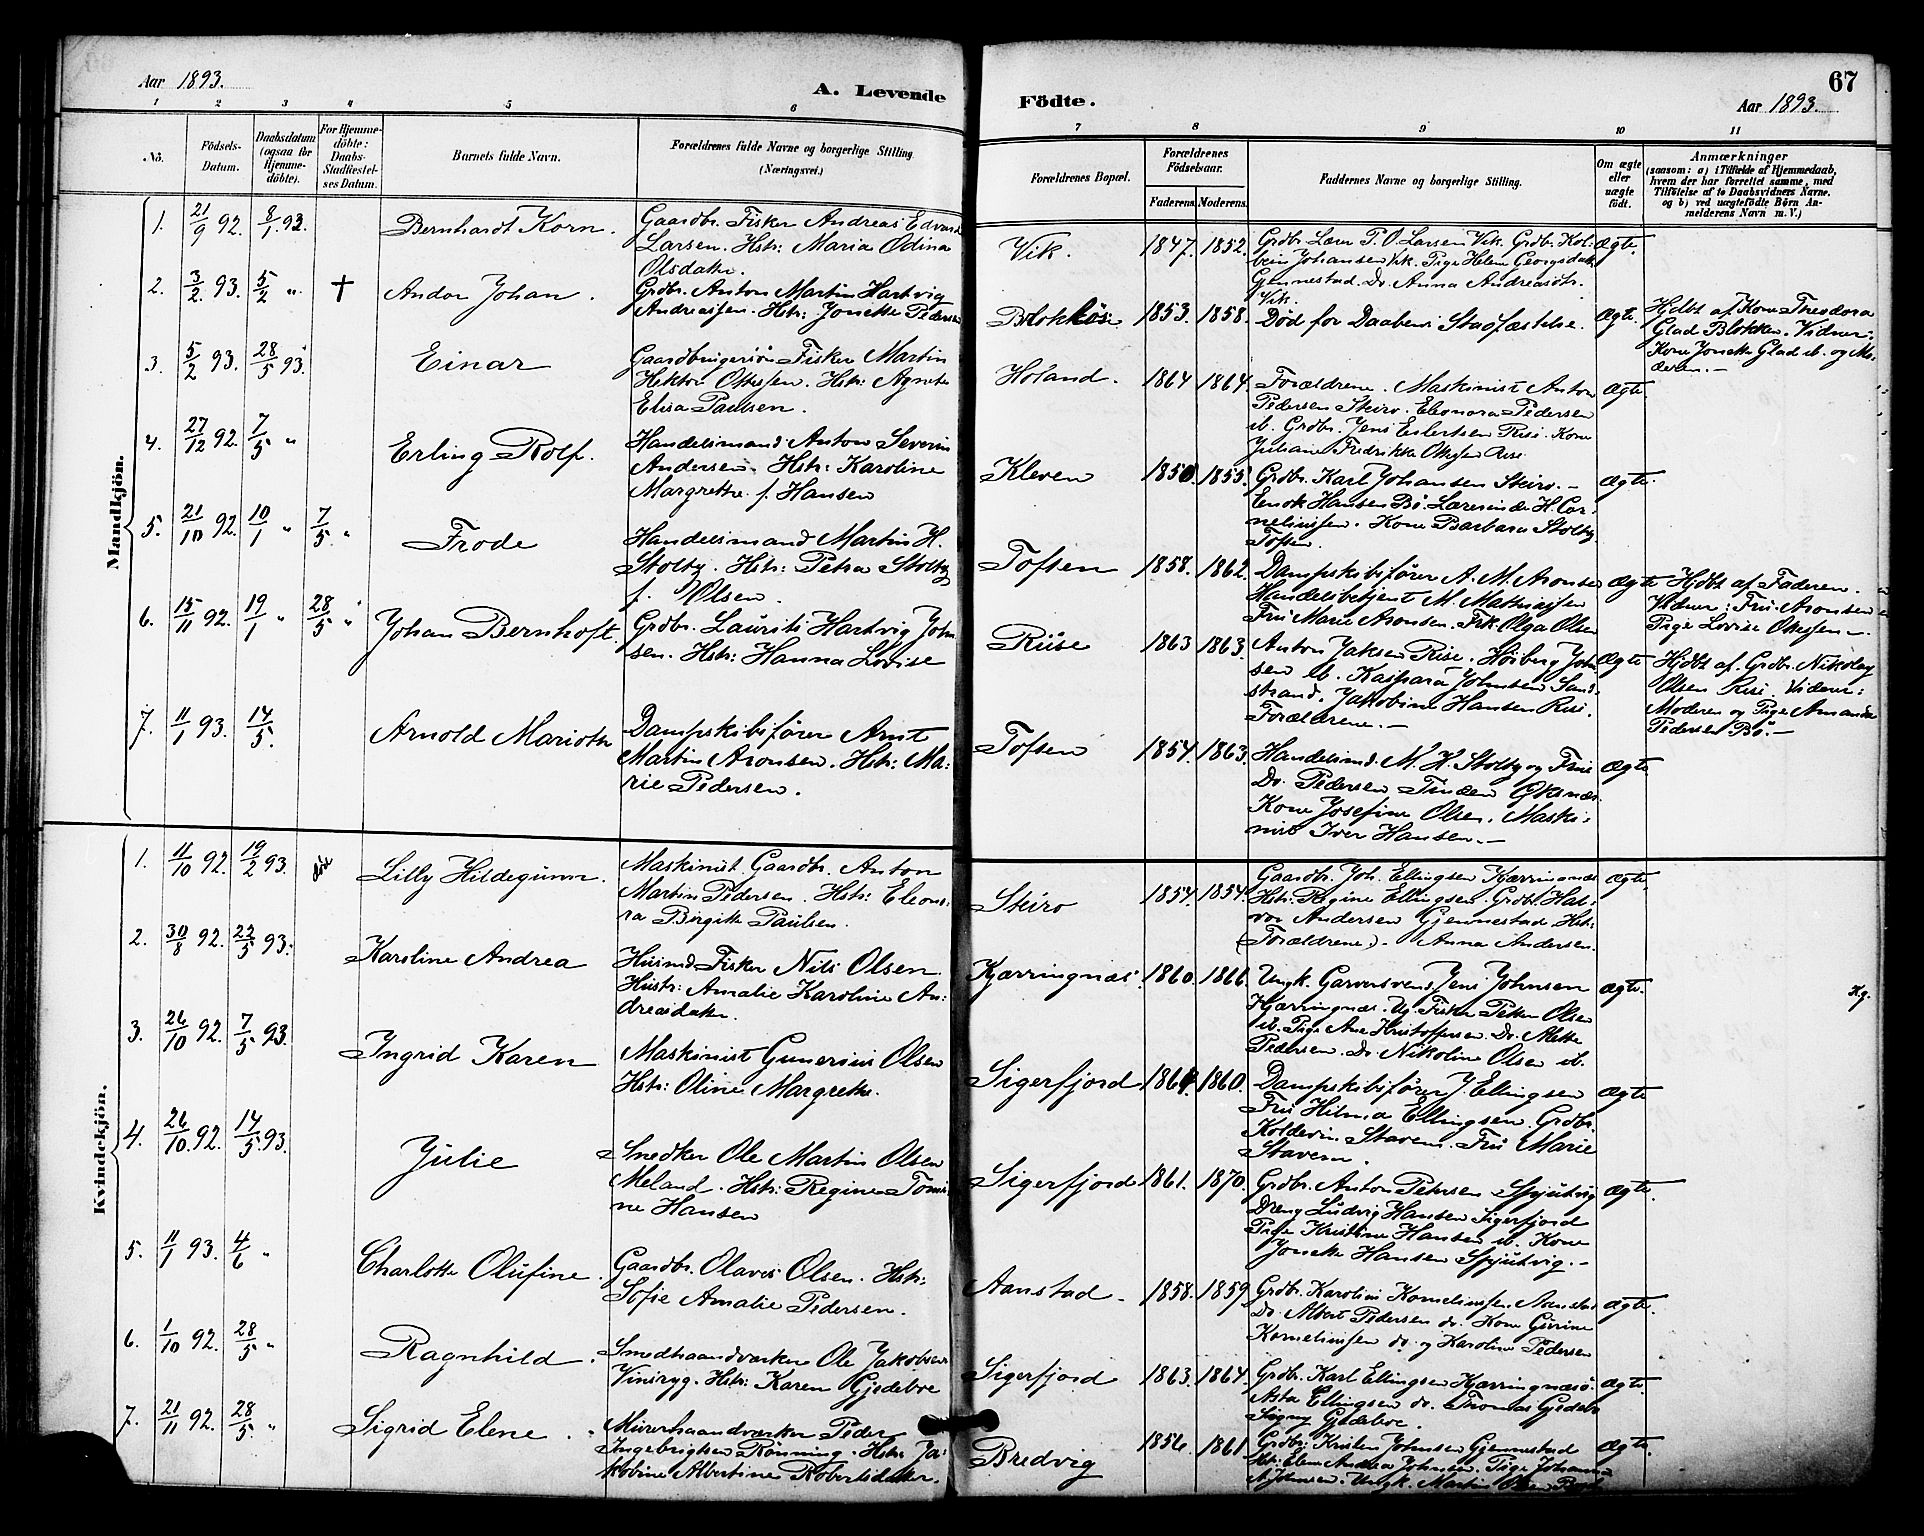 Aar 1893.
A. Levende
Födte.
67
Aar 1893.
1 2 3 4 5 6 7 8 9 10 11
No.
Födsels-Datum.
Daabsdatum (ogsaa för Hjemme-döbte).
For Hjemme-döbte: Daabs-Stadfæstelses Datum.
Barnets fulde Navn.
Forældrenes fulde Navne og borgerlige Stilling. (Næringsvei.)
Forældrenes Bopæl.
Forældrenes Födselsaar.
Faderens. Moderens.
Faddernes Navne og borgerlige Stilling.
Om ægte eller uægte födt.
Anmærkninger
(saasom: a) i Tilfælde af Hjemmedaab, hvem der har forrettet samme, med Tilföielse af to Daabsvidners Navne. og b) ved uægtefödte Börn Anmelderens Navn m. V.)
Mandkjön.
1. 21/9 92. 8/1 93. Bernhardt Korn.
Gaardbr. Fisker Andreas Edvard
Larsen. Hstr: Maria Odina
Olsdatter.
Vik. 1847. 1852.
Grdbr. Lærer P. O. Larsen Vik. Grdbr. Kol-
bein Johansen Vik. Pige Helene Georgsdatt.
Gjennestad. Do. Anna Andreasdtr.
Vik.
Ægte.
2. 3/2 93. 5/2 " † Andor Johan.
Grdbr. Anton Martin Hartvig
Andreassen. Hstr: Jonette Pedersen
1853. 1858.
Död for Daabens Stadfæstelse.
Ægte.
Hjdbt af Kone Theodora
Glad Blokken. Vidner:
Kone Jonette Glad ib. og Mo-
deren.
3. 5/2 93. 28/5 93. Einar
Gaardbrugersön Fisker Martin
Hektor Ottesen. Hstr: Agnete
Elisa Paulsen.
Holand. 1864 1864.
Forældrene. Maskinist Anton
Pedersen Steiro. Eleonora Pedersen
ib. Grdbr. Jens Eilertsen Risö. Kone
Juliane Fredrikke Ottesen
Ægte.
4. 27/12 92. 7/5 " Erling Rolf.
Handelsmand Anton Severin
Andersen. Hstr: Karoline
Margrethe f. Hansen
Kleven 1850. 1855.
Grdbr. Karl Johansen Steiro.
Enok Hansen Bö. Lærerinde H. Cor-
neliussen. Kone Barbara Stoltz
Toften.
Ægte.
5. 21/10 92. 10/1 " 7/5 " Frode
Handelsmand Martin H.
Stoltz. Hstr: Petra Stoltz
f. Olsen.
Toften 1858. 1862.
Dampskibsförer A. M. Aronsen
Handelsbetjent M. Mathiassen
Fru Marie Aronsen. Frk. Olga Olsen
Ægte
Hjdbt af Faderen.
Vidner: Fru Aronsen
Pige Lovise Ottesen.
6. 15/11 92. 19/1 " 28/5 " Johan Bernhoft.
Grdbr. Laurits Hartvig John-
sen. Hstr: Hanna Lovise
1863 1863.
Anton Jaksen Risö. Hösberg John-
sen ib. Kaspara Johnsen Sand-
strand. Jakobine Hansen Risö.
Forældrene.
Ægte
Hjdbt af Grdbr. Nikolay
Olsen Risö. Vidner:
Moderen og Pige Amanda
Pedersen Bö.
7. 11/1 93. 14/5. Arnold Marioth
Dampskibsförer Arnt
Martin Aronsen. Hstr: Ma-
rie Pedersen.
Toften 1854. 1863.
Handelsmd. M. H. Stoltz og Frue
Do. Pedersen Tinden Öksnæs.
Kone Josefine Olsen. Maski-
nist Iver Hansen.
Ægte
Kvindekjön.
1. 11/10 92. 19/2 93. Lilly Hildegunn.
Maskinist Gaardbr. Anton
Martin Pedersen. Hstr: Eleono-
ra Birgitte Paulsen.
Steiro 1854. 1854.
Gaardbr. Joh. Ellingsen Kjærringnæs
Hstr: Regine Ellingsen. Grdbr. Hal-
vor Andersen Gjennestad Hstr:
(Forældrene). Anna Andersen.
Ægte.
2. 30/8 92. 22/5 93. Karoline Andrea
Husmd. Fisker Nils Olsen
Hustr: Amalie Karoline An-
dreasdatter.
Kjærringnæs. 1860. 1866.
Ungk. Garversvend Jens Johnsen
Kjærringnæs. Ug. Fisker Peter Olsen
ib. Pige Ane Kristoffersen Do. Mette
Pedersen. Do. Nikoline Olsen ib.
Ægte.
Kg.
3. 26/10 92. 7/5 93. Ingrid Karen
Maskinist Gunerius Olsen
Hstr: Oline Margrethe.
Sigerfjord 1864. 1860.
Dampskibsförer J. Ellingsen
Fru Hilma Ellingsen. Grdbr.
Koldevin Staven. Fru Marie
Staven.
Ægte
4. 26/10. 92. 14/5 93. Julie
Snedker Ole Martin Olsen
Meland. Hstr: Regine Tomi-
ne Hansen
Sigerfjord 1861. 1870.
Grdbr. Anton Petersen Spjutvig
Dreng Ludvig Hansen Sigerfjord
Pige Kristine Hansen ib. Kone
Jonette Hansen Spjutvig.
Ægte.
5. 11/1 93. 4/6 " Charlotte Olufine.
Gaardbr. Olavus Olsen. Hstr:
Sofie Amalie Pedersen.
Aanstad. 1858. 1859
Grdbr. Karolius Korneliussen Aanstad
Do. Albert Pedersen do. Kone Gurine
Korneliussen do. og Karoline Pedersen
Ægte.
6. 1/10 92. 28/5 " Ragnhild.
Smedhaandværker Ole Jakobsen
Vinsryg. Hstr: Karen Gjedeboe
Sigerfjord 1863. 1864.
Grdbr. Karl Ellingsen Kjærringnæsö.
Asta Ellingsen do. Thomas Gjedebo
Signy Gjedeboe.
Ægte.
7. 21/11 92. 28/5 " Sigrid Elene.
Murerhaandværker Peder
Ingebrigtsen Rönning. Hstr: Ja-
kobine Albertine Robertsdatter.
Bredvig 1856. 1861.
Grdbr. Kristen Johnsen Gjennestad
Hstr: Elen Andrea Johnsen. Pige Johanna
A. Johnsen. Ungk. Martin Olsen
Ægte.